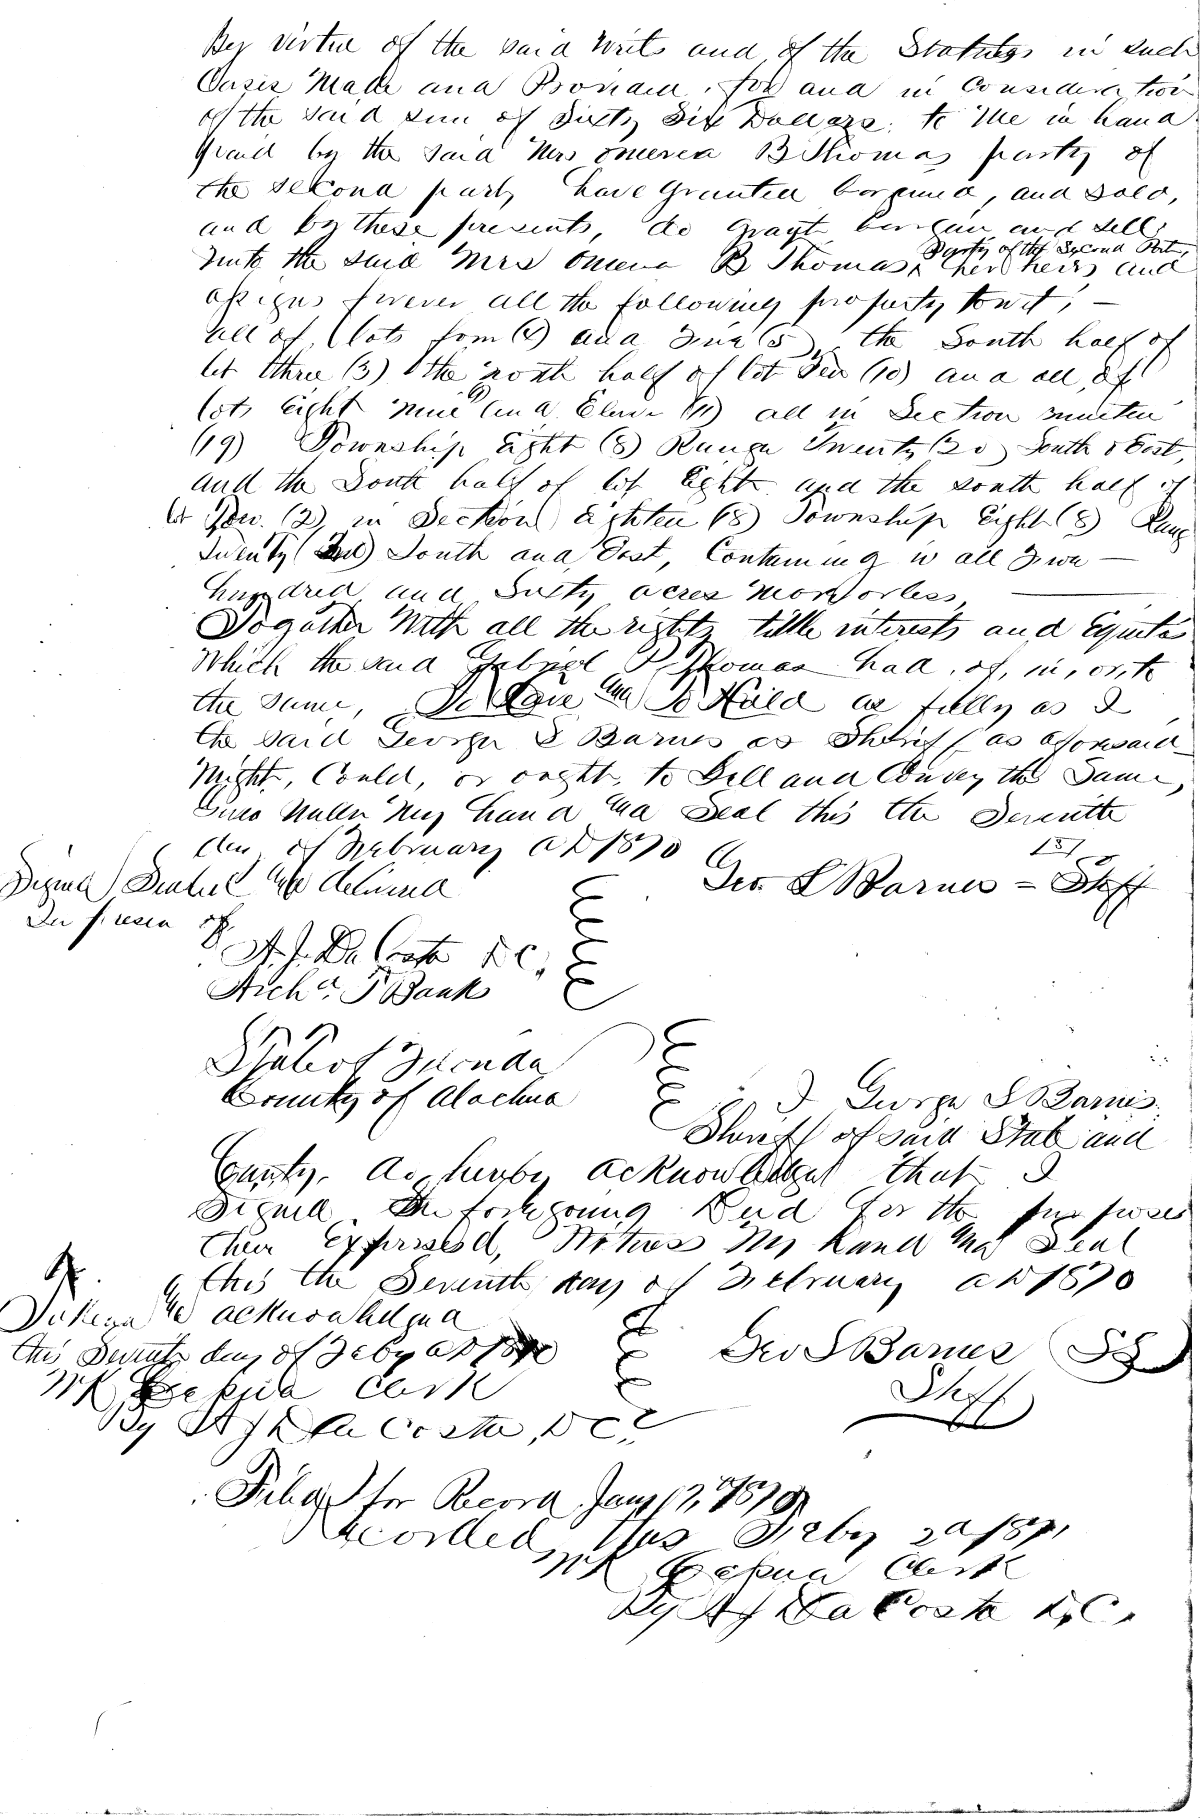 By virtue of the said Writs and of the Statutes in such
Cases Made and Provided, for and in Consideration
of the said sum of Sixty Six Dollars. to Me in hand
paid by the said Mrs Omeria B Thomas party of
the second party have granted bargained, and sold,
and by these presents, do grant bargain and sell
unto the said Mrs Omeria B Thomas, Party of the Second Part, her heirs and
assigns forever all the following property to wit, —
all of, lots four (4) and Five (5), the South half of
lot three (3) the north half of lot Ten (10) and all of
lots Eight Nine (9) and Eleven (11) all in Section nineteen
(19) Township Eight (8) Range Twenty (20) South & East,
and the South half of lot Eight and the south half of
lot Two (2) in Section Eighteen (18) Township Eight (8) Range
Twenty South and East, Containing in all Two —
hundred and Sixty acres more or less, —
Together With all the rights title interests and Equities
Which the said Gabriel P Thomas had, of, in, or, to
the same, To Have and To Hold as fully as I
the said George S Barnes as Sheriff as aforesaid
Might, Could, or ought, to Sell and Convey the Same,
Given Under My hand and Seal this the Seventh
day of February A D 1870
Signed Sealed and delivered Geo. S Barnes = Shff
In presen of
A. J. Da Costa D C.
Archd. T Banks
State of Florida
County of Alachua I George S Barnes
Sheriff of said State and
County. do hereby acknowledge that I
Signed the foregoing Deed for the purposes
their Expressed, Witness My hand and Seal
this the Seventh day of February A D 1870
Taken and acknowledged
this Seventh day of Feby A D 1870 Geo S Barnes (SS)
W K Cessna Clerk Shff
By A J Da Costa, D C.
Filed for Record Jany 17, 1870
Recorded this Feby 2d 1871
W K Cessna Clerk
By A J Da Costa D, C,